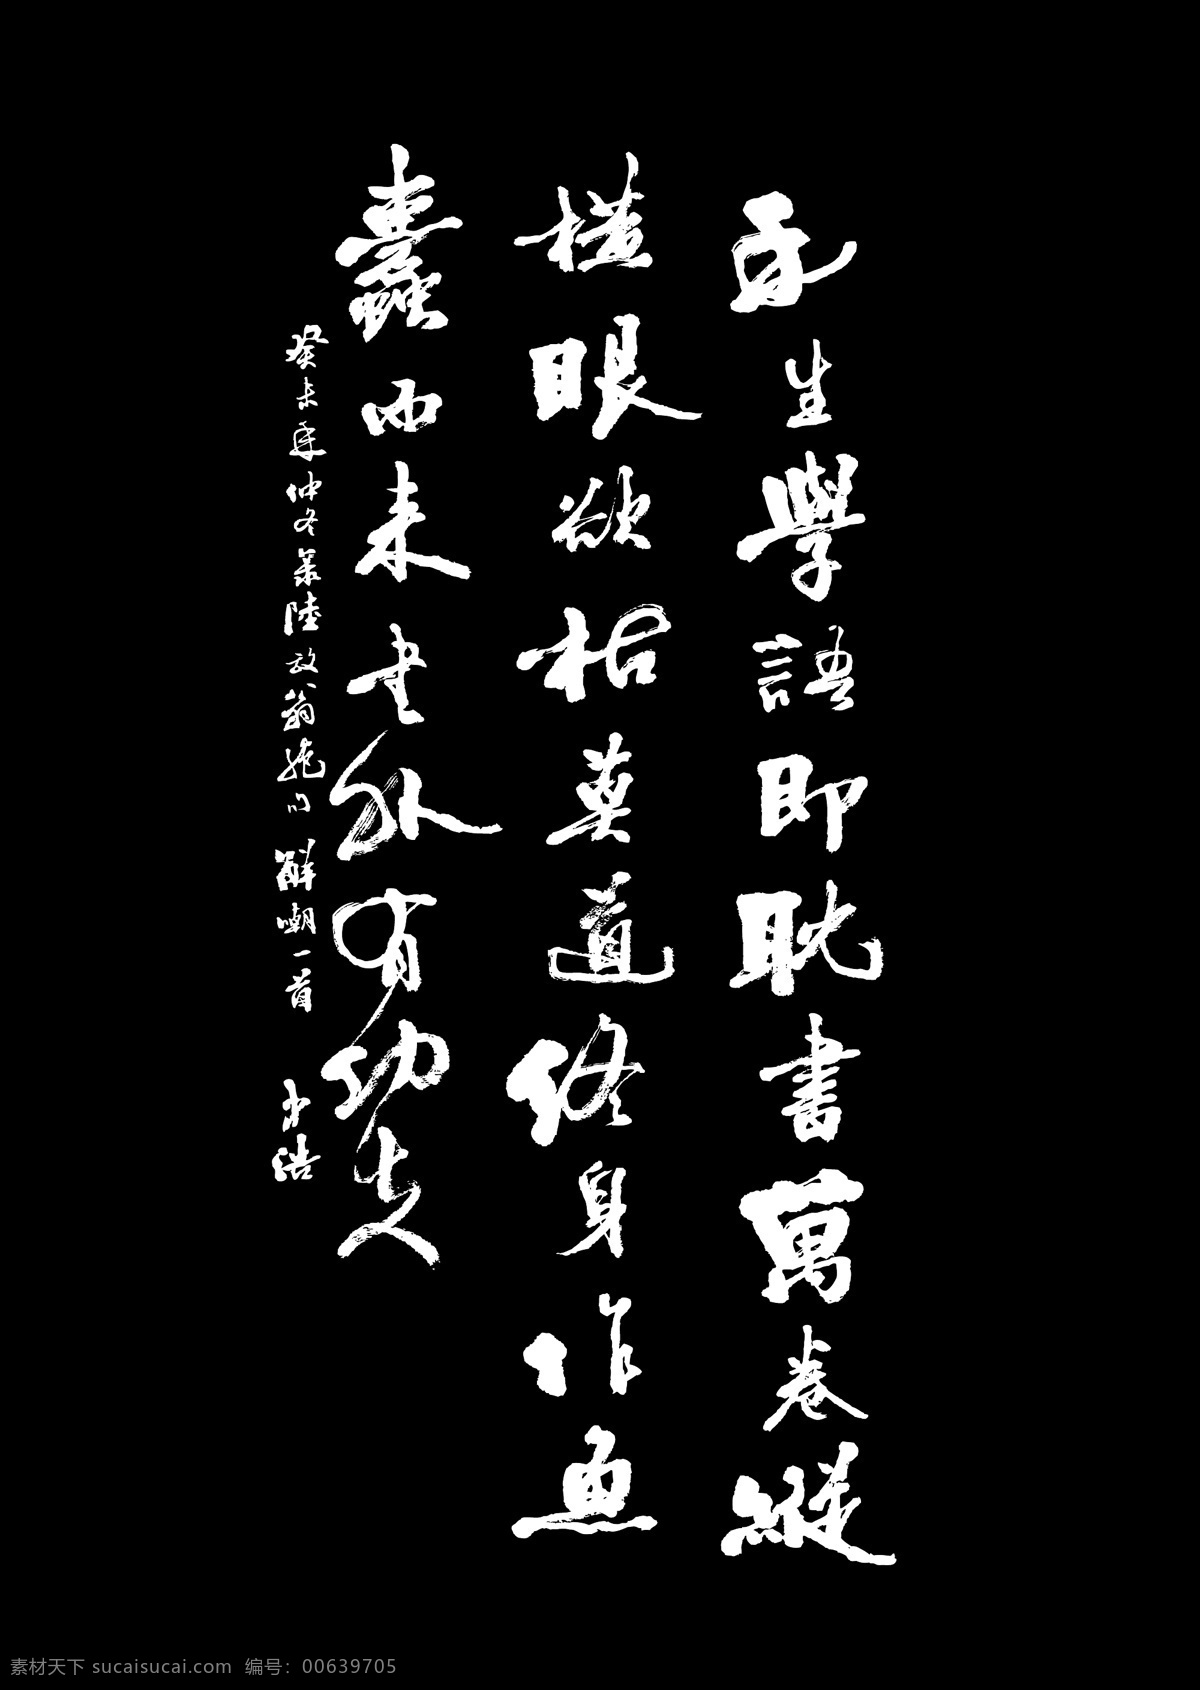 我生學語即耽書萬卷縱
橫眼欲枯莫道終身作魚
蠹而来書外有功夫
癸未年仲冬录陸放翁絶句解嘲一首 浩
素材天下 sucaisucai.com 编号：00639705